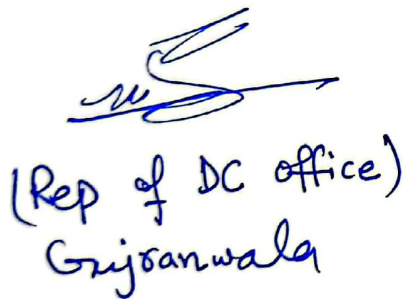 (Rep of DC office)
Gujranwala